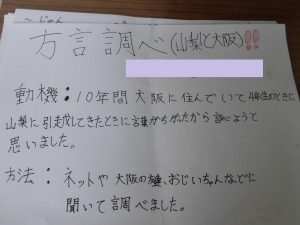 ～じゃん
方言調べ(山梨と大阪)!!
動機：10年間大阪に住んでいて4年生のときに
山梨に引っ越してきたときに言葉がちがったから調べようと
思いました。
方法：ネットや大阪の友達、おじいちゃんなどに
聞いて調べました。